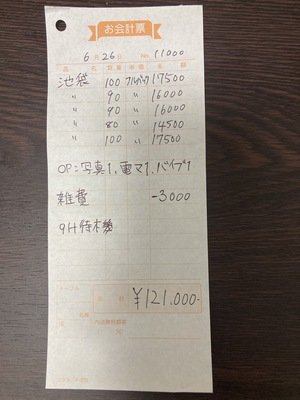 お会計票
6月26日 No. 11000
品名 数量 単価 金額
池袋 100 フルバック 17500
〃 90 〃 16000
〃 90 〃 16000
〃 80 〃 14500
〃 100 〃 17500
OP=写真1、電マ1、バイブ1
雑費 -3000
9H待機
合計 ¥121.000-